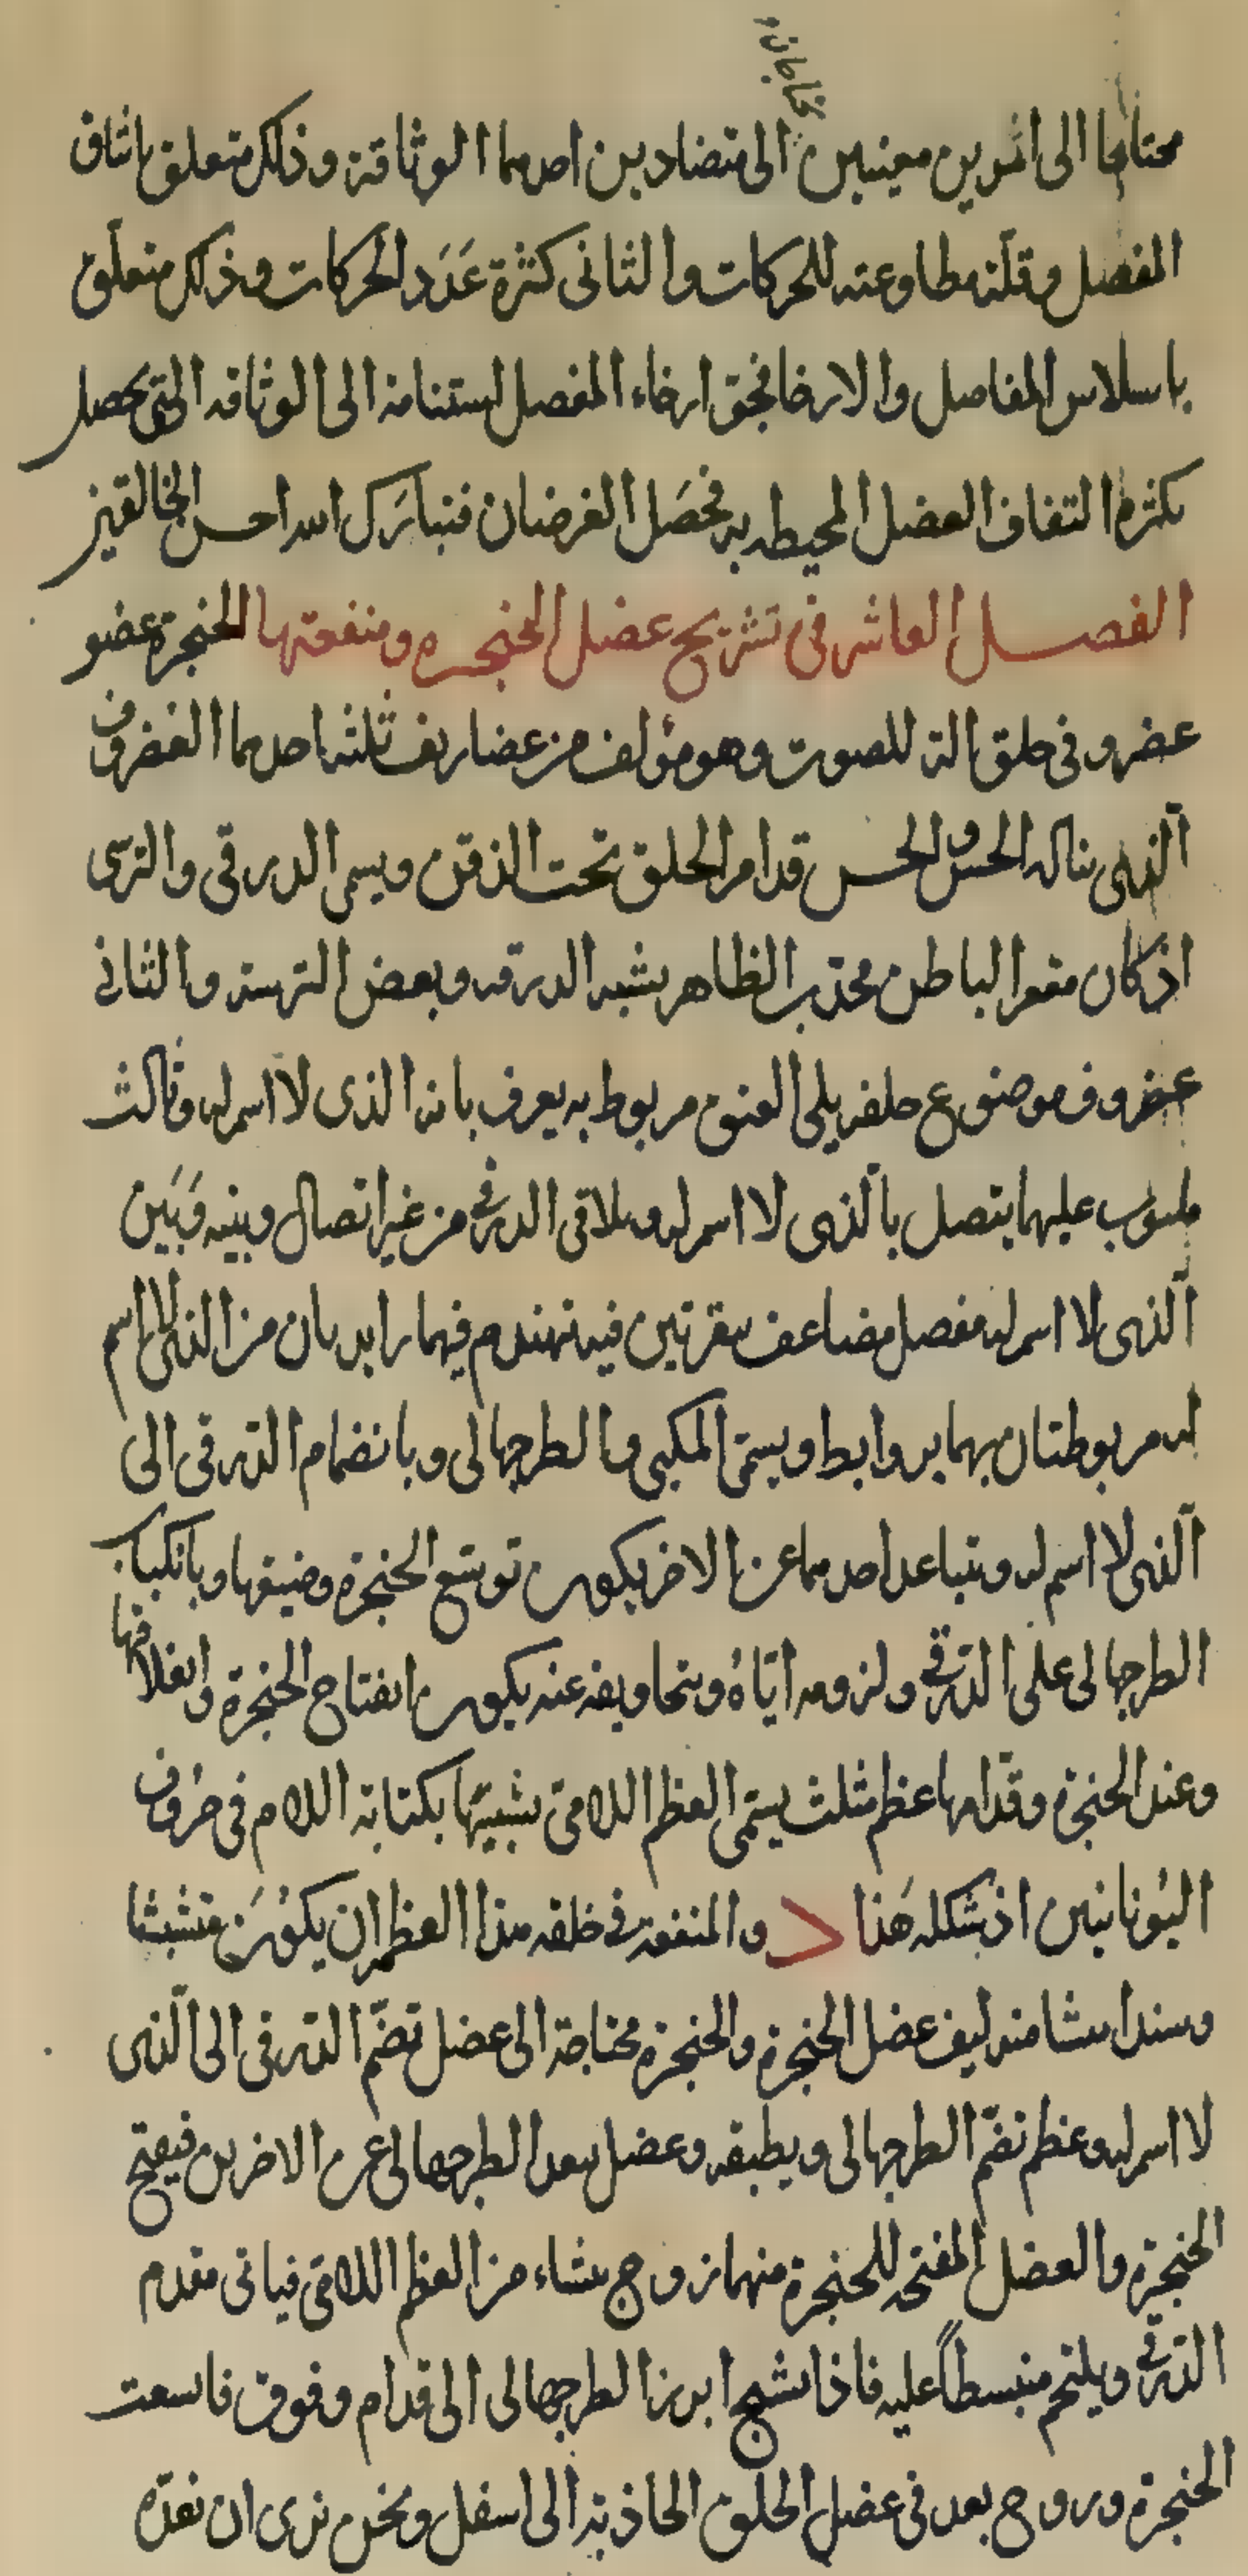 يحتاجان
محتاجا الى امرين معنيين الى متضادين احدهما الوثاقة وذلك متعلق باثاق
المفصل وقلّة مطاوعته للحركات والثانى كثرة عَدَد الحركات وذلك متعلّق
باسلاس المفاصل والارخا فجوّز ارخاء المفصل استنامة الى الوثاقه التى تحصل
بكثرة التفاف العضل المحيطه به فحصَل الغرضان فتبارَك الله احسن الخالقين
الفصل العاشر فى تشريح عضل الحنجره ومنفعتها الحنجرة عضو
عضروفى خلق الة للصوت وهو مؤلف من عضاريف ثلثه احدهما الغضروف
الّذى يناله الحس والجس قدام الحلق تحت الذقن ويسمى الدرقى والترسى
اذ كان مقعر الباطن محدّب الظاهر يشبه الدرقه وبعض الترسة والثانى
عضروف موضوع خلفه يلى العنق مربوط به يعرف بانه الذى لا اسم له وثالث
مكبوب عليهما يتصل بالّذى لا اسم له ويلاقى الدرقى من غير اتصال وبينه وَبَين
الّذى لا اسم له مفصل مضاعف بنقرتين فيه تهندم فيهما زايدتان من الذى لا اسم
له مربوطتان بهما بروابط ويسمّى المكبى والطرجهالى وبانضمام الدّرقى الى
الّذى لا اسم له وبتباعد احدهما عن الاخر يكون توسّع الحنجرة وضيقها وبانكباب
الطرجهالى على الدّرقى ولزومه ايّاهُ وبتجافيه عنه يكون انفتاح الحنجرة وانغلاقها
وعند الحنجرة وقدّامها عظم مثلث يسمّى العظم اللامىّ تشبيهًا بكتابة اللام فى حرُوف
اليُونانيين اذ شكله هَذا > والمنفعة فى خلقه هذا العظم ان يكُونَ متشبثا
وسندا ينشا منه ليف عضل الحنجرة والحنجرة محتاجة الى عضل تضمّ الدّرقى الى الّذى
لا اسم له وعظم تضّم الطرجهالى ويطبقه وعضل يبعد الطرجهالى عن الاخرين فيفتح
الحنجرة والعضل المفتحه للحنجرة منها زوج ينشاء من العظم اللامّى فياتى مقدم
الدّرقى ويلتحم منبسطاً عليه فاذا تشنج ابرز الطرجهالى الى قدام وفوق فاتسعت
الحنجرة وزوج يعد فى عضل الحلق الجاذبة الى اسفل ونحن نرى ان نعدّه